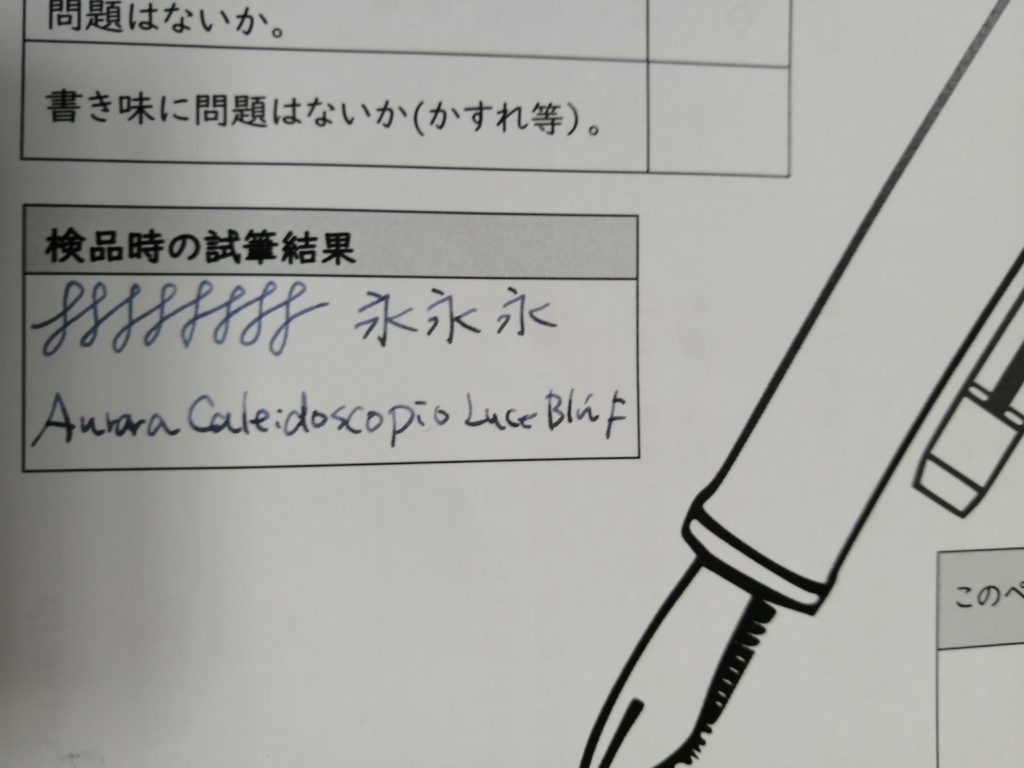 問題はないか。
書き味に問題はないか(かすれ等)。
検品時の試筆結果
永永永
Aurora Caleidoscopio Luce Blu F
このペ